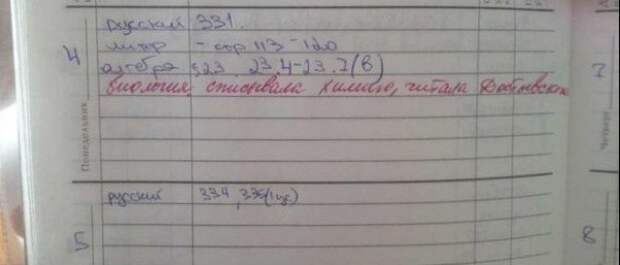 4
русский 331.
литер - стр 113-120
алгебра §23 23.4-23.7(в)
биология, списывала химию, читала Достоевского
Понедельник
русский 334, 335(1
5
7
8